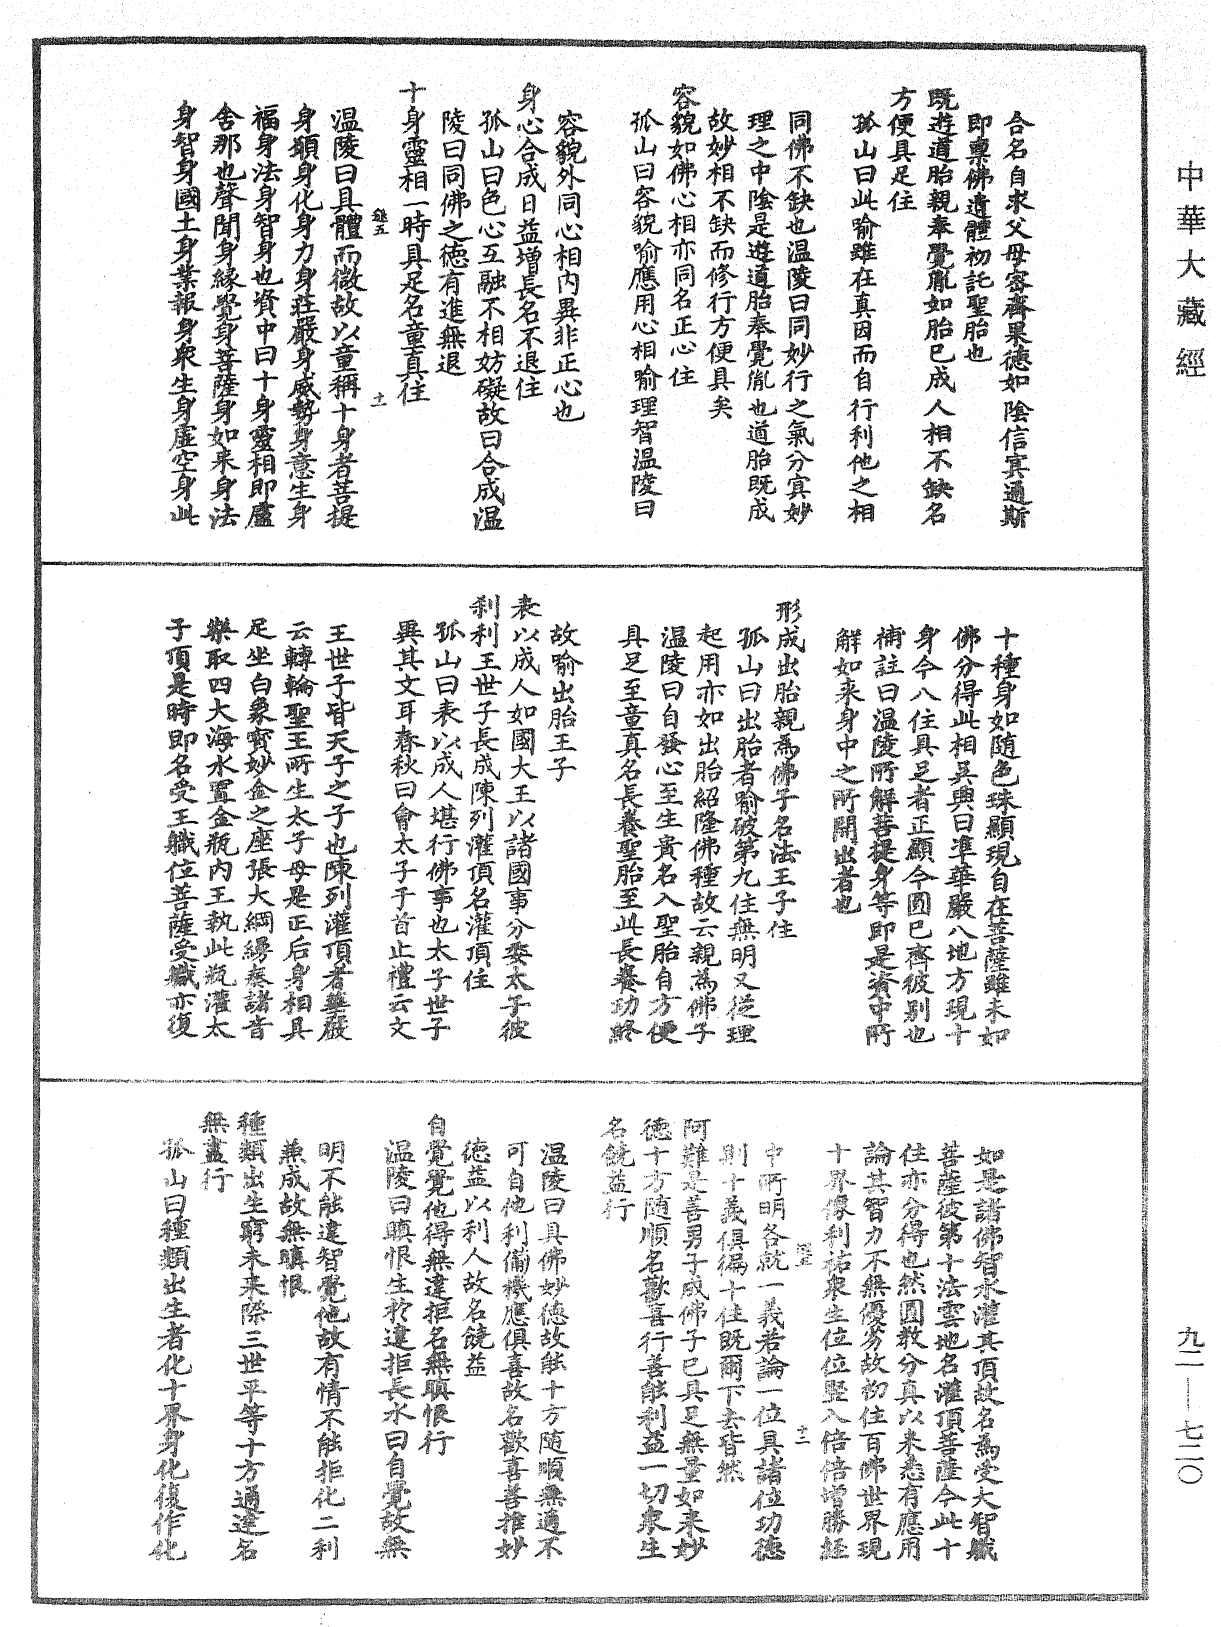 中華大藏經
合名自求父母容齊果德如陰信冥通斯
即稟佛遺體初託聖胎也
既遊道胎親奉覺胤如胎已成人相不缺名
方便具足住
孤山曰此喻雖在真因而自行利他之相
同佛不缺也温陵曰同妙行之氣分冥妙
理之中陰是遊道胎奉覺胤也道胎既成
故妙相不缺而修行方便具矣
容貌如佛心相亦同名正心住
孤山曰容貌喻應用心相喻理智温陵曰
容貌外同心相內異非正心也
身心合成日益增長名不退住
孤山曰色心互融不相妨礙故曰合成温
陵曰同佛之德有進無退
十身靈相一時具足名童真住
温陵曰具體而微故以童稱十身者菩提
身願身化身力身莊嚴身威勢身意生身
福身法身智身也資中曰十身靈相即盧
舍那也聲聞身緣覺身菩薩身如来身法
身智身國土身業報身衆生身虛空身此
十種身如随色珠顯現自在菩薩雖未如
佛分得此相吴興曰準華嚴八地方現十
身今八住具足者正顯今圓已齊彼別也
補註曰温陵所解菩提身等即是資中所
解如来身中之所開出者也
形成出胎親為佛子名法王子住
孤山曰出胎者喻破第九住無明又從理
起用亦如出胎紹隆佛種故云親為佛子
温陵曰自發心至生貴名入聖胎自方便
具足至童真名長養聖胎至此長養功終
故喻出胎王子
表以成人如國大王以諸國事分委太子彼
剎利王世子長成陳列灌頂名灌頂住
孤山曰表以成人堪行佛事也太子世子
異其文耳春秋曰會太子于首止禮云文
王世子皆天子之子也陳列灌頂者華嚴
云轉輪聖王所生太子母是正后身相具
足坐白象寶妙金之座張大網縵奏諸音
樂取四大海水置金瓶內王執此瓶灌太
子頂是時即名受王職位菩薩受職亦復
如是諸佛智水灌其頂故名為受大智職
菩薩彼第十法雲地名灌頂菩薩今此十
住亦分得也然圓教分真以来悉有應用
論其智力不無優劣故初住百佛世界現
十界像利祐衆生位位竪入倍倍增勝經
中所明各就一義若論一位具諸位功德
則十義俱徧十住既爾下去皆然
阿難是善男子成佛子已具足無量如来妙
德十方随順名歡喜行善能利益一切衆生
名饒益行
温陵曰具佛妙德故能十方随順無適不
可自他利備機應俱喜故名歡喜善推妙
德益以利人故名饒益
自覺覺他得無違拒名無瞋恨行
温陵曰瞋恨生於違拒長水曰自覺故無
明不能違智覺他故有情不能拒化二利
兼成故無瞋恨
種類出生窮未来際三世平等十方通達名
無盡行
孤山曰種類出生者化十界身化復作化
十一
十二
九一—七二〇